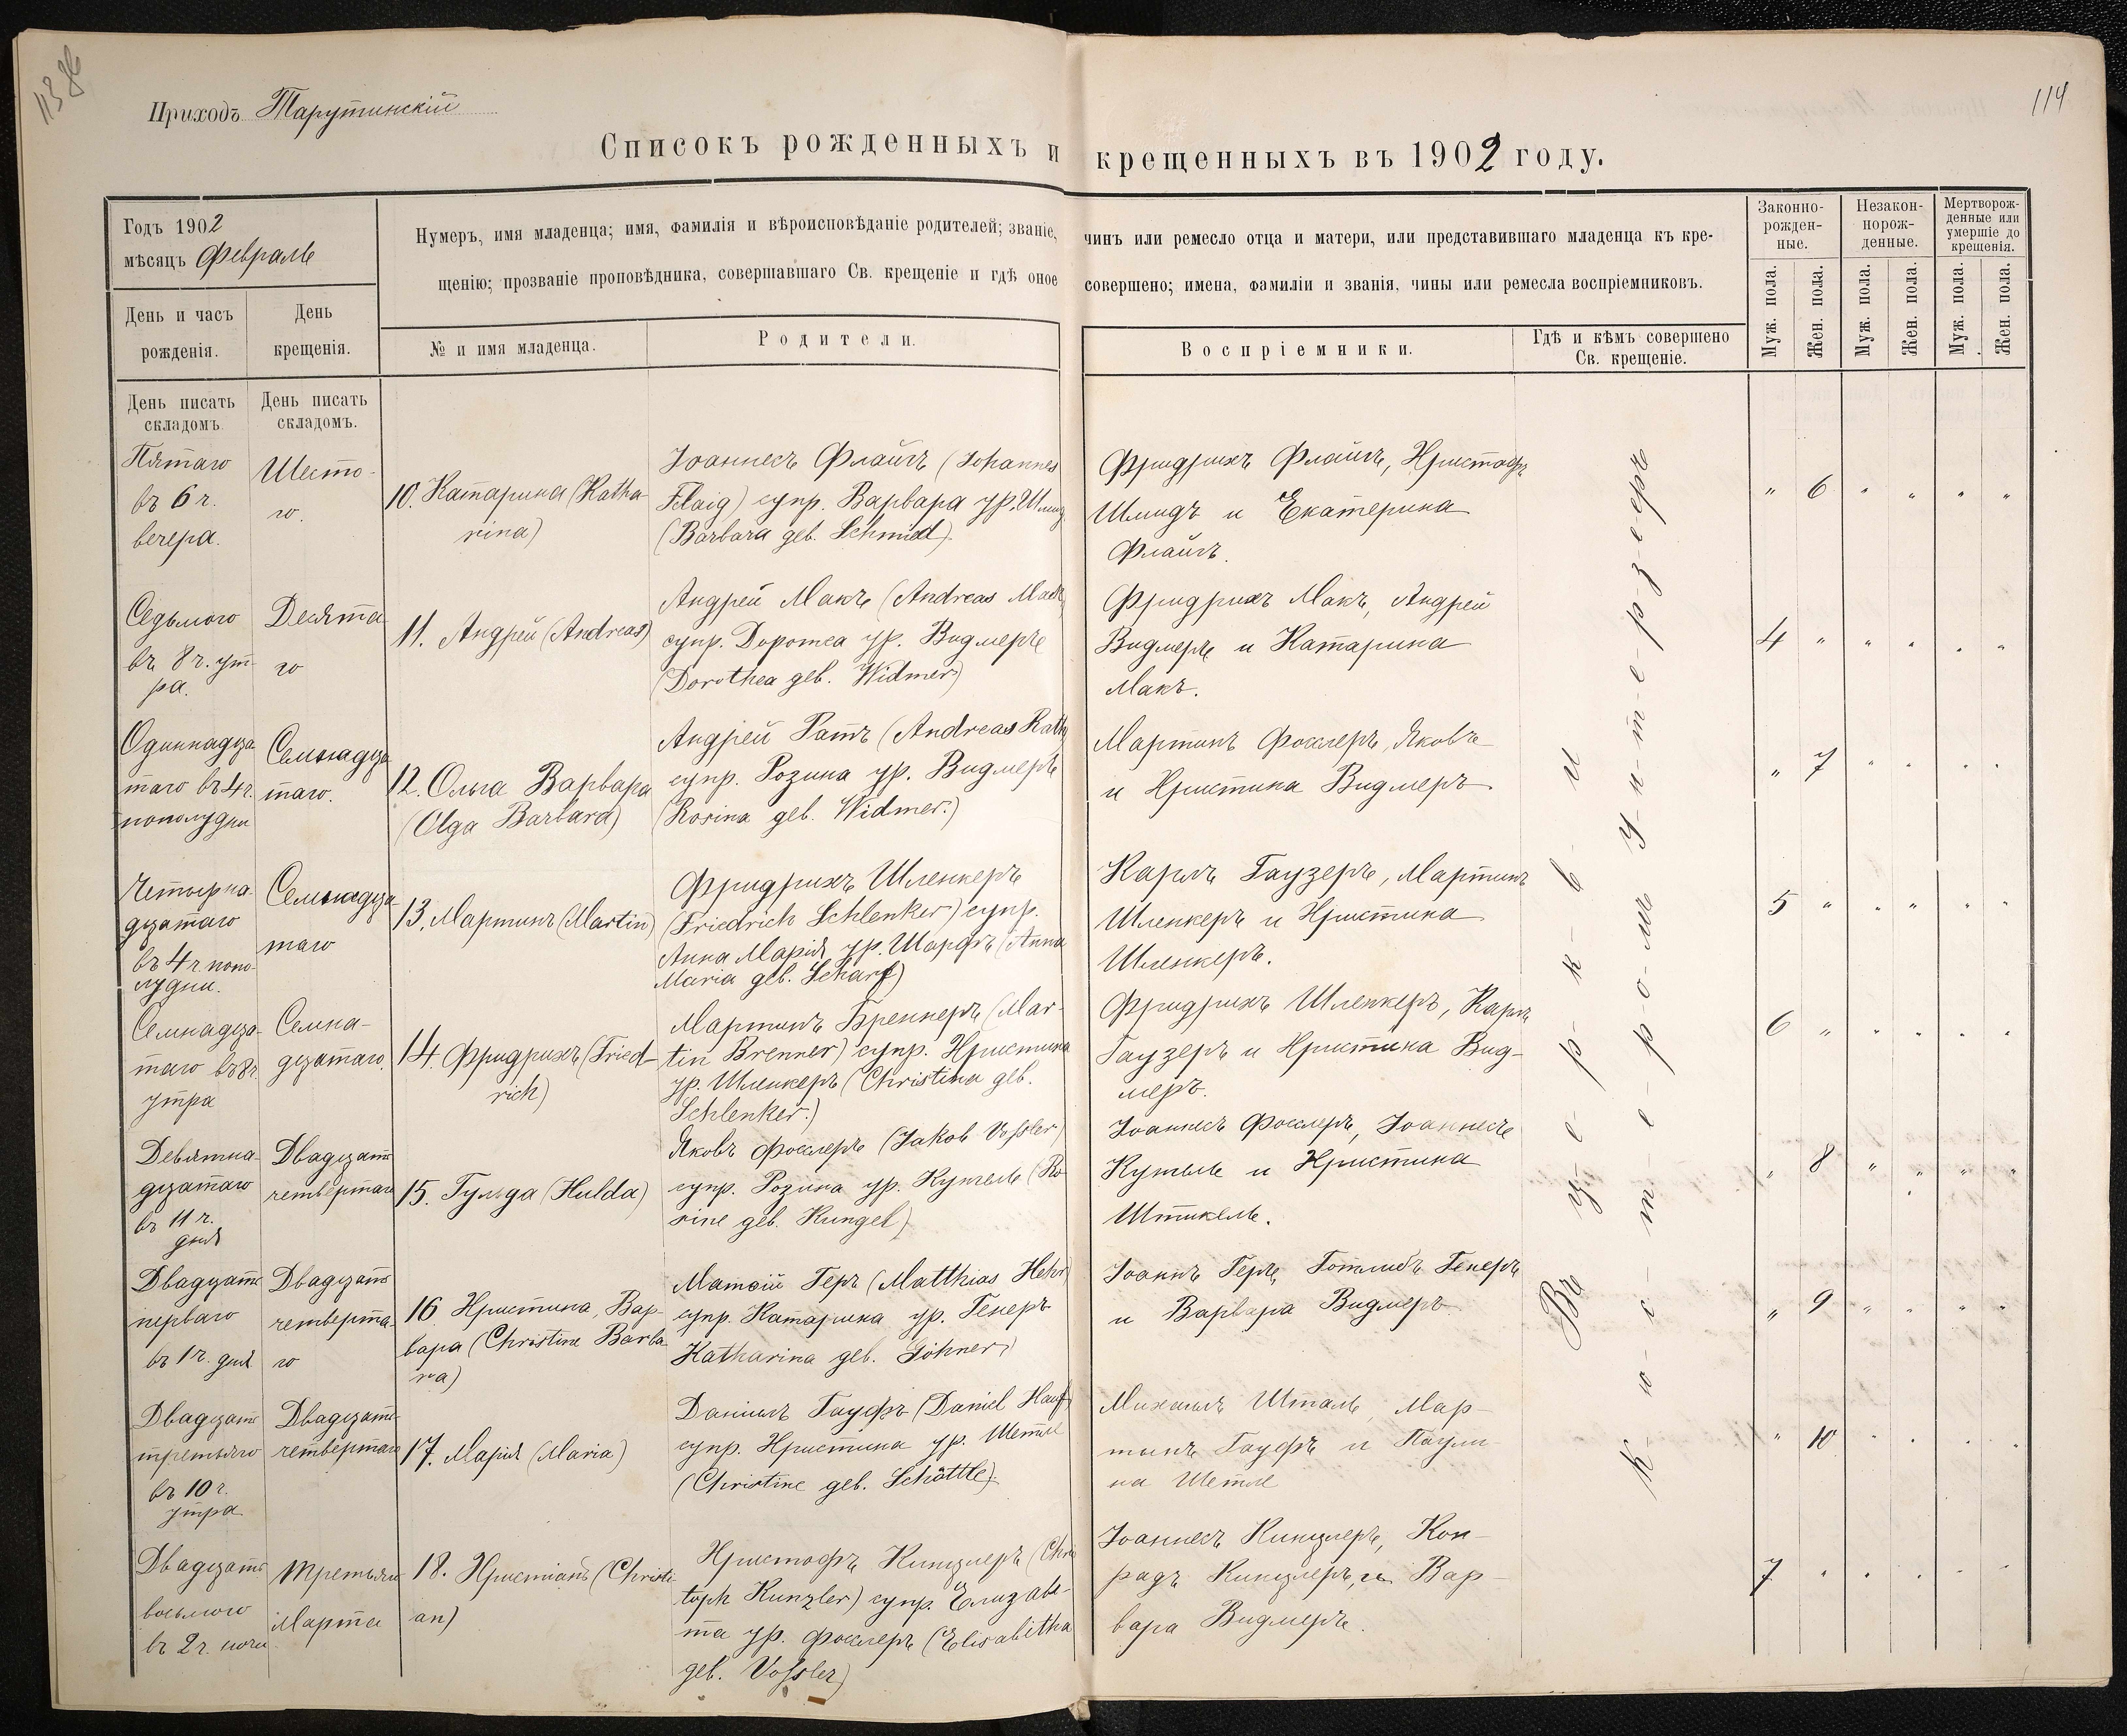 113 об
114
Приходъ Тарутинскій
Списокъ рожденныхъ и крещенныхъ въ 1902 году.
Годъ 1902
мѣсяцъ Февраль
Нумеръ, имя младенца; имя, фамилія и вѣроисповѣданіе родителей; званіе, чинъ или ремесло отца и матери, или представившаго младенца къ кре-
щенію; прозваніе проповѣдника, совершавшаго Св. крещеніе и гдѣ оное совершено; имена, фамиліи и званія, чины или ремесла воспріемниковъ.
Законно-
рожден-
ные.
Незакон-
норож-
денные.
Мертворож-
денные или
умершіе до
крещенія.
День и часъ
рожденія.
День
крещенія.
№ и имя младенца.
Родители.
Воспріемники.
Гдѣ и кѣмъ совершено
Св. крещеніе.
Муж. пола.
Жен. пола.
Муж. пола.
Жен. пола.
Муж. пола.
Жен. пола.
День писать
складомъ.
День писать
складомъ.
Пятаго
въ 6 ч.
вечера.
Шесто-
го.
10. Катарина (Katha-
rina)
Іоаннесъ Флайгъ (Johannes
Flaig) супр. Варвара ур. Шмид
(Barbara geb. Schmid).
Фридрихъ Флайгъ, Христофъ
Шмидъ и Екатерина
Флайгъ.
" 6 " " " "
Седьмого
въ 8 ч. ут-
ра.
Десята-
го
11. Андрей (Andreas)
Андрей Макъ (Andreas Mack)
супр. Доротеа ур. Видмеръ
(Dorothea geb. Widmer)
Фридрихъ Макъ, Андрей
Видмеръ и Катарина
Макъ.
4 " " " " "
Одиннадца
таго въ 4 ч.
пополудни
Семнадца
таго.
12. Ольга Варвара
(Olga Barbara)
Андрей Ратъ (Andreas Rath)
супр. Розина ур. Видмеръ
(Rosina geb. Widmer.)
Мартинъ Фослеръ, Яковъ
и Христина Видмеръ
" 7 " " " "
Четырна-
дцатаго
въ 4 ч. попо-
лудни.
Семнадца
таго
13. Мартинъ (Martin)
Фридрихъ Шленкеръ
(Friedrich Schlenker) супр.
Анна Марія ур. Шарфъ (Anna
Maria geb. Scharf)
Карлъ Гаузеръ, Мартинъ
Шленкеръ и Христина
Шленкеръ.
5 " " " " "
Семнадца-
таго въ 8 ч.
утра
Семна-
дцатаго.
14. Фридрихъ (Fried-
rich)
Мартинъ Бреннеръ (Mar-
tin Brenner) супр. Христина
ур. Шленкеръ (Christina geb.
Schlenker.)
Фридрихъ Шленкеръ, Карлъ
Гаузеръ и Христина Вид-
меръ.
6 " " " " "
Девятна-
дцатаго
въ 11 ч.
дня
Двадцать
четвертаго
15. Гульда (Hulda)
Яковъ Фослеръ (Jakob Voßler)
супр. Розина ур. Кунгель (Ro
sine geb. Kungel)
Іоаннесъ Фослеръ, Іоаннесъ
Кунгель и Христина
Штикель.
" 8 " " " "
Двадцать
перваго
въ 1 ч. дня
Двадцать
четверта-
го
16. Христина, Вар-
вара (Christine Barba
ra)
Матѳій Геръ (Matthias Hehr)
супр. Катарина ур. Генеръ
Katharina geb. Göhner)
Іоаннъ Геръ, Готлибъ Генеръ
и Варвара Видмеръ
" 9 " " " "
Двадцать
третьяго
въ 10 ч.
утра
Двадцать
четвертаго
17. Марія (Maria)
Даніилъ Гауфъ (Daniel Hauf)
супр. Христина ур. Шетле
(Christine geb. Schöttle).
Михаилъ Шталь, Мар-
тинъ Гауфъ и Паули-
на Шетле
" 10 " " " "
Двадцать
восьмого
въ 2 ч. ночи
Третьяго
Марта
18. Христіанъ (Christi-
an)
Христофъ Кинцлеръ (Chris
toph Kunzler) супр. Елизаве-
та ур. Фослеръ (Elisabetha
geb. Voßler)
Іоаннесъ Кинцлеръ, Кон-
радъ Кинцлеръ, и Вар-
вара Видмеръ.
7 " " " " "
Въ ц-е-р-к-в-и
К-ю-с-т-е-р-о-мъ У-н-т-е-р-з-е-еръ